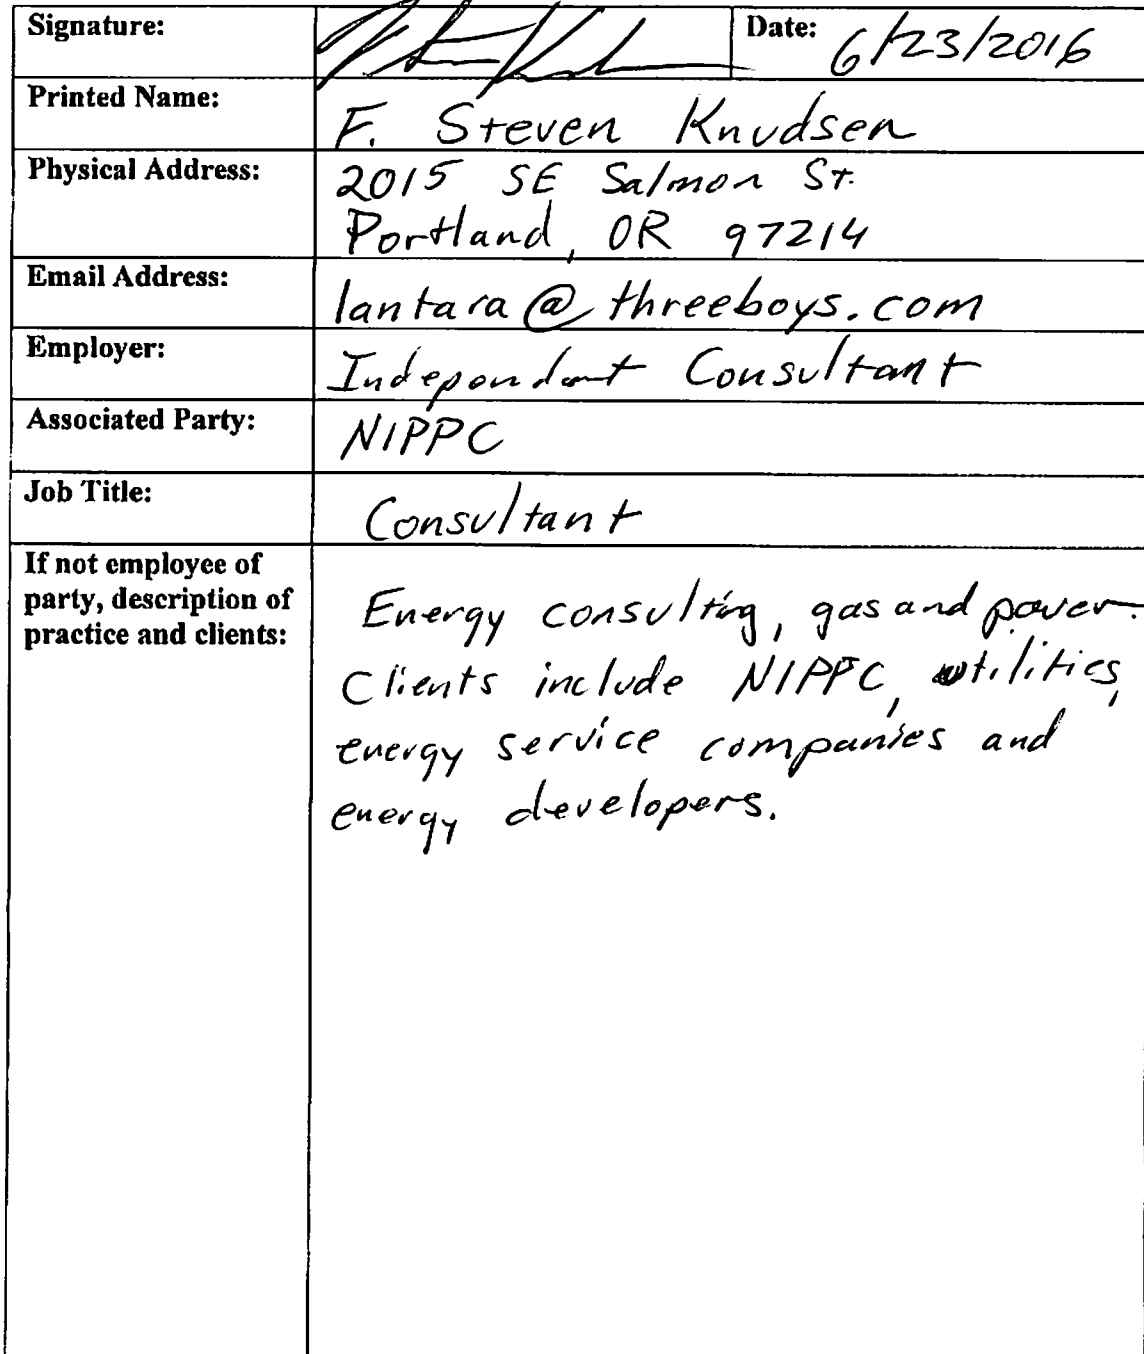 Signature: Date: 6/23/2016
Printed Name: F. Steven Knudsen
Physical Address: 2015 SE Salmon St.
Portland, OR 97214
Email Address: lantara@threeboys.com
Employer: Independent Consultant
Associated Party: NIPPC
Job Title: Consultant
If not employee of
party, description of
practice and clients:
Energy consulting, gas and power.
Clients include NIPPC, utilities,
energy service companies and
energy developers.